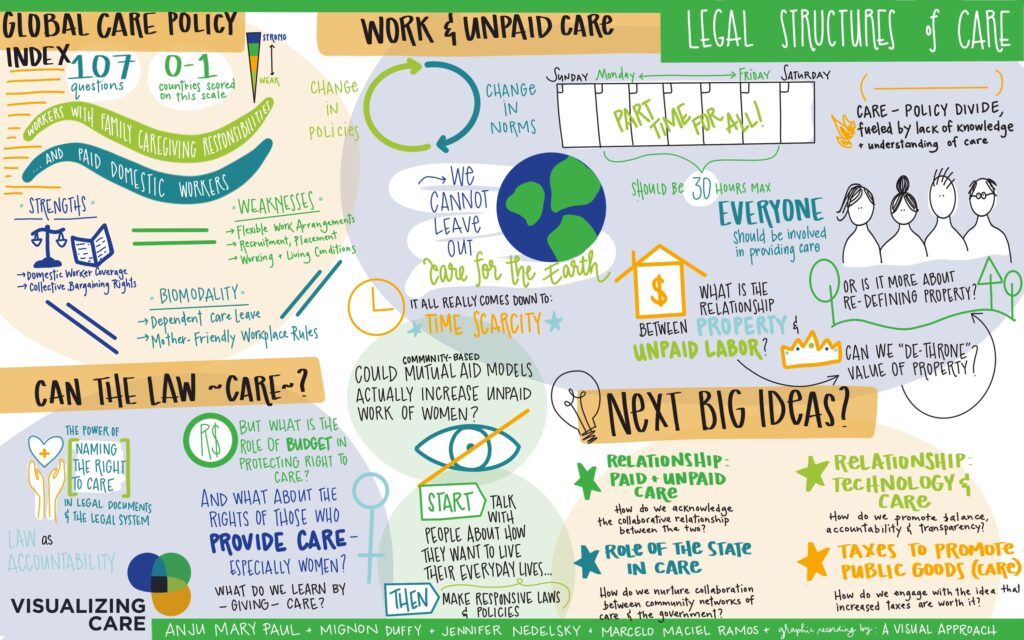 LEGAL STRUCTURES of CARE
GLOBAL CARE POLICY
INDEX
107
questions
0-1
countries scored
on this scale
STRONG
WEAK
WORKERS WITH FAMILY CAREGIVING RESPONSIBILITIES
... AND PAID DOMESTIC WORKERS
STRENGTHS
→ Domestic Worker Coverage
→ Collective Bargaining Rights
WEAKNESSES
→ Flexible Work Arrangements
→ Recruitment, Placement
→ Working + Living Conditions
BIOMODALITY
→ Dependent Care Leave
→ Mother-Friendly Workplace Rules
WORK & UNPAID CARE
CHANGE
IN
POLICIES
CHANGE
IN
NORMS
→ WE
CANNOT
LEAVE
OUT
Care for the Earth
IT ALL REALLY COMES DOWN TO:
TIME SCARCITY
SUNDAY Monday FRIDAY SATURDAY
PART TIME FOR ALL!
SHOULD BE 30 HOURS MAX
EVERYONE
should be involved
in providing care
CARE - POLICY DIVIDE,
fueled by lack of knowledge
+ understanding of care
$
WHAT IS THE
RELATIONSHIP
BETWEEN PROPERTY &
UNPAID LABOR?
OR IS IT MORE ABOUT
RE-DEFINING PROPERTY?
CAN WE "DE-THRONE"
VALUE OF PROPERTY?
CAN THE LAW ~CARE~?
THE POWER OF
NAMING
THE RIGHT
TO CARE
IN LEGAL DOCUMENTS
& THE LEGAL SYSTEM
LAW as
ACCOUNTABILITY
R$
BUT WHAT IS THE
ROLE OF BUDGET IN
PROTECTING RIGHT TO
CARE?
AND WHAT ABOUT THE
RIGHTS OF THOSE WHO
PROVIDE CARE -
ESPECIALLY WOMEN?
WHAT DO WE LEARN BY
- GIVING - CARE?
COMMUNITY-BASED
COULD MUTUAL AID MODELS
ACTUALLY INCREASE UNPAID
WORK OF WOMEN?
START TALK
WITH
PEOPLE ABOUT HOW
THEY WANT TO LIVE
THEIR EVERYDAY LIVES...
THEN MAKE RESPONSIVE LAWS
& POLICIES
NEXT BIG IDEAS?
RELATIONSHIP:
PAID + UNPAID
CARE
How do we acknowledge
the collaborative relationship
between the two?
ROLE OF THE STATE
IN CARE
How do we nurture collaboration
between community networks of
care & the government?
RELATIONSHIP:
TECHNOLOGY &
CARE
How do we promote balance,
accountability & transparency?
TAXES TO PROMOTE
PUBLIC GOODS (CARE)
How do we engage with the idea that
increased taxes are worth it?
VISUALIZING
CARE
ANJU MARY PAUL + MIGNON DUFFY + JENNIFER NEDELSKY + MARCELO MACIEL RAMOS + graphic recording by: A VISUAL APPROACH